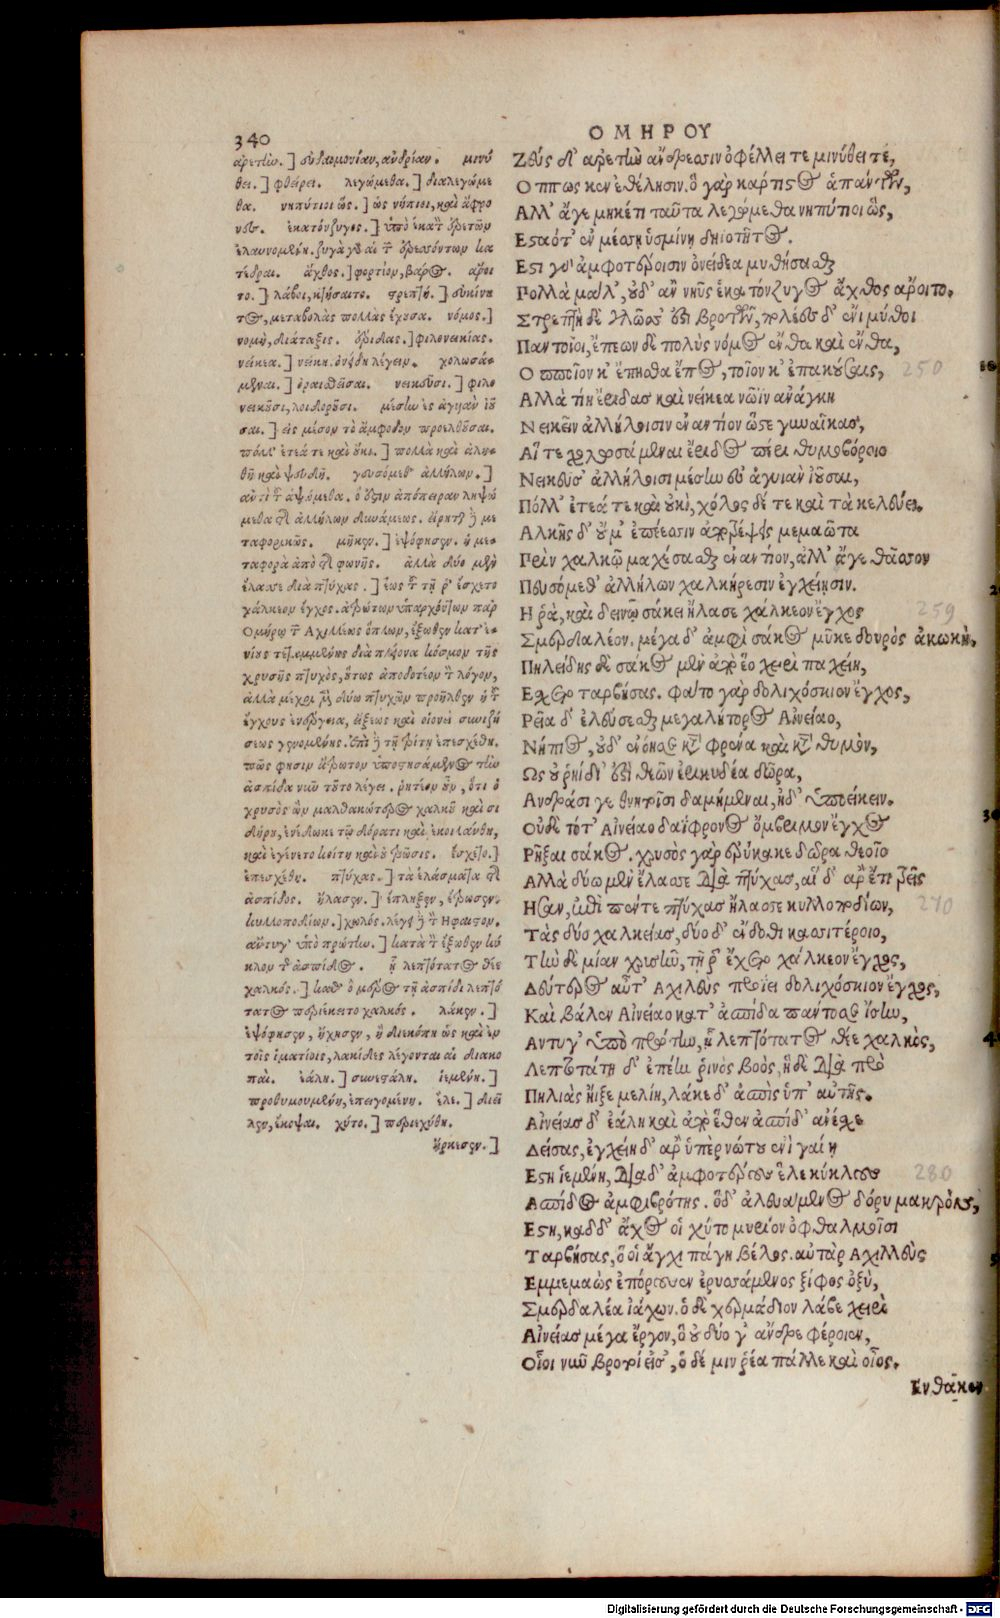 340
ΟΜΗΡΟΥ
ἀρετὼ.] εὐδαιμονίαν, ἀνδρίαν. μινύ
θει.] φθείρει. λεγώμεθα.] διαλεγώμε
θα. νηπύτιοι ὥς.] ὡς νήπιοι, καὶ ἄφρο
νες. ἑκατόνζυγος.] ὑπὸ ἑκατὸν ἐρετῶν
ἐλαυνομένη. ζυγὰ γὰρ αἱ τῶν ἐρεσσόντων κα
τέδραι. ἄχθος.] φορτίον, βάρος. ἄροι
το.] λάβοι, κτήσαιτο. στρεπτή.] εὐκίνη
τος, μεταβολὰς πολλὰς ἔχουσα. νόμος.]
νομὴ, διάταξις. ἔριδας.] φιλονεικίας.
νείκεα.] νείκη. ὀνείδη λέγειν. χολωσά-
μεναι.] ὀργισθεῖσαι. νεικεῦσι.] φιλο
νεικοῦσι, λοιδοροῦσι. μέσην ἐς ἄγυιαν ἰοῦ
σαι.] εἰς μέσον τὸ ἄμφοδον προελθοῦσαι.
πόλλ' ἐτεά τε καὶ οὐκί.] πολλὰ καὶ ἀλη-
θῆ καὶ ψευδῆ. γευσόμεθ' ἀλλήλων.]
ἀντὶ τοῦ ἁψόμεθα. ὅ ἐστιν ἀπόπειραν ληψώ
μεθα τῆς ἀλλήλων δυνάμεως. εἴρηται δὲ με
ταφορικῶς. μῆκεν.] ἐψόφησεν. ἡ με-
ταφορὰ ἀπὸ τῆς φωνῆς. ἀλλὰ δύο μὲν
ἔλασε διὰ πτύχας.] ἕως τοῦ τῇ ῥ' ἔσχετο
χάλκεον ἔγχος.
ἀσπίδος. ἤλασεν.] ἔπληξεν, ἔτρωσεν.
κυλλοποδίων.] χωλός. λέγει δὲ τὸν Ηφαιστον.
ἄντυγ' ὑπὸ πρώτην.] κατὰ τὸν ἔξωθεν κύ
κλον τῆς ἀσπίδος. ᾗ λεπτότατος θέε
χαλκός.] καθ' ὃ μέρος τῇ ἀσπίδι λεπτό
τατος περιέκειτο χαλκός. λάκεν.]
ἐψόφησεν, ἤχησεν, ἢ διεκόπη ὡς καὶ ἐν
τοῖς ἱματίοις, λακίδες λέγονται αἱ διακο
παί. ἐάλη.] συνεστάλη. ἱεμένη.]
προθυμουμένη, ἐπειγομένη. ἕλε.] διεῖ
λεν, ἔκοψαι. χύτο.] περιεχύθη.
ἤρκεσεν.]
Ζεὺς δ' ἀρετὴν ἄνδρεσσιν ὀφέλλει τε μινύθει τε,
Οππως κεν ἐθέλησιν. ὁ γὰρ κάρτιστος ἁπάντων,
Αλλ' ἄγε μηκέτι ταῦτα λεγώμεθα νηπύτιοι ὣς,
Εσταότ' ἐν μέσῃ ὑσμίνῃ δηιοτῆτος.
Εστι γὰρ ἀμφοτέροισιν ὀνείδεα μυθήσασθαι
Πολλὰ μάλ', οὐδ' ἂν νηῦς ἑκατόνζυγος ἄχθος ἄροιτο.
Στρεπτὴ δὲ γλῶσσ' ἐστὶ βροτῶν, πολέες δ' ἔνι μύθοι
Παντοῖοι, ἐπέων δὲ πολὺς νόμος ἔνθα καὶ ἔνθα,
Ο πποῖον κ' εἴπησθα ἔπος, τοῖον κ' ἐπακούσαις, 250
Αλλὰ τίη ἔριδας καὶ νείκεα νῶϊν ἀνάγκη
Νεικεῖν ἀλλήλοισιν ἐναντίον ὥστε γυναῖκας,
Αἵ τε χολωσάμεναι ἔριδος πέρι θυμοβόροιο
Νεικεῦσ' ἀλλήλοισι μέσην ἐς ἄγυιαν ἰοῦσαι,
Πόλλ' ἐτεά τε καὶ οὐκὶ, χόλος δέ τε καὶ τὰ κελεύει.
Αλκῆς δ' οὔ μ' ἐπέεσσιν ἀποτρέψεις μεμαῶτα
Πρὶν χαλκῷ μαχέσασθαι ἐναντίον, ἀλλ' ἄγε θᾶσσον
Γευσόμεθ' ἀλλήλων χαλκήρεσιν ἐγχείῃσιν.
Η ῥὰ, καὶ δεινῷ σάκει ἤλασε χάλκεον ἔγχος 259
Σμερδαλέον. μέγα δ' ἀμφὶ σάκος μῦκε δουρὸς ἀκωκῇ.
Πηλείδης δὲ σάκος μὲν ἀπὸ ἕο χειρὶ παχείῃ,
Εσχετο ταρβήσας. φάτο γὰρ δολιχόσκιον ἔγχος,
Ρεῖα δ' ἐλεύσεσθαι μεγαλήτορος Αἰνείαο,
Νήπιος, οὐδ' ἐνόησε κατὰ φρένα καὶ κατὰ θυμὸν,
Ως οὐ ῥηίδι' ἐστὶ θεῶν ἐρικυδέα δῶρα,
Ανδράσι γε θνητοῖσι δαμήμεναι, ἠδ' ὑποείκειν.
Οὐδὲ τότ' Αἰνείαο δαΐφρονος ὄμβριμον ἔγχος
Ρῆξαι σάκος. χρυσὸς γὰρ ἐρύκακε δῶρα θεοῖο
Αλλὰ δύω μὲν ἔλασσε διὰ πτύχας, αἱ δ' ἄρ' ἔτι τρεῖς
Ησαν, ἐπεὶ πέντε πτύχας ἤλασσε κυλλοποδίων, 270
Τὰς δύο χαλκείας, δύο δ' ἔνδοθι κασσιτέροιο,
Τὴν δὲ μίαν χρυσῆν, τῇ ῥ' ἔσχετο χάλκεον ἔγχος,
Δεύτερος αὖτ' Αχιλεὺς προΐει δολιχόσκιον ἔγχος,
Καὶ βάλεν Αἰνείαο κατ' ἀσπίδα πάντοσε ἴσην,
Αντυγ' ὑπὸ πρώτην, ᾗ λεπτότατος θέε χαλκὸς,
Λεπτοτάτη δ' ἐπέην ῥινὸς βοὸς, ἡ δὲ διὰ πρὸ
Πηλιὰς ἤϊξε μελίη, λάκε δ' ἀσπὶς ὑπ' αὐτῆς.
Αἰνείας δ' ἐάλη καὶ ἀπὸ ἕθεν ἀσπίδ' ἀνέσχε
Δείσας, ἐγχείη δ' ἄρ' ὑπὲρ νώτου ἐνὶ γαίῃ
Εστη ἱεμένη, διὰ δ' ἀμφοτέρους ἕλε κύκλους 280
Ασπίδος ἀμφιβρότης. ὁ δ' ἀλευάμενος δόρυ μακρὸν,
Εστη, καδδ' ἄχος οἱ χύτο μυρίον ὀφθαλμοῖσι
Ταρβήσας, ὅ οἱ ἄγχι πάγη βέλος. αὐτὰρ Αχιλλεὺς
Εμμεμαὼς ἐπόρουσεν ἐρυσσάμενος ξίφος ὀξὺ,
Σμερδαλέα ἰάχων. ὁ δὲ χερμάδιον λάβε χειρὶ
Αἰνείας μέγα ἔργον, ὃ οὐ δύο γ' ἄνδρε φέροιεν,
Οἷοι νῦν βροτοί εἰσ', ὁ δέ μιν ῥέα πάλλε καὶ οἶος.
Ενθά κεν
Digitalisierung gefördert durch die Deutsche Forschungsgemeinschaft - DFG